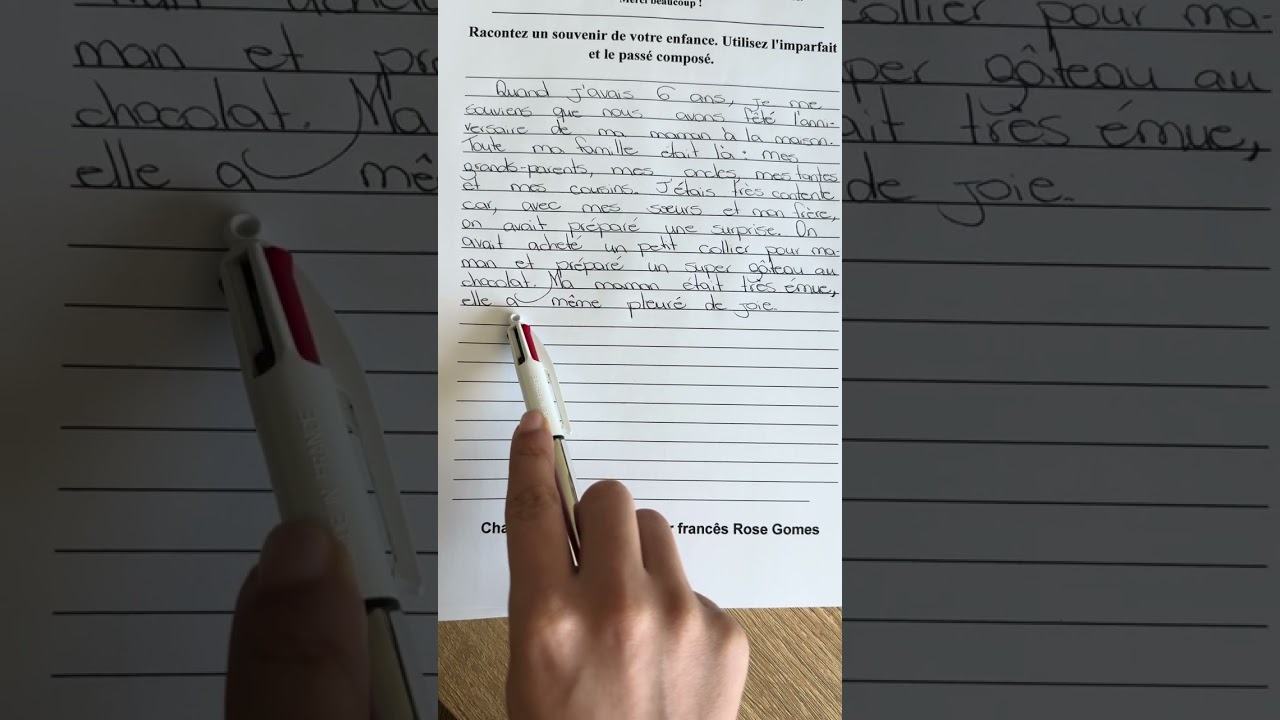 Merci beaucoup !
Racontez un souvenir de votre enfance. Utilisez l'imparfait
et le passé composé.
Quand j'avais 6 ans, je me
souviens que nous avons fêté l'anni-
versaire de ma maman à la maison.
Toute ma famille était là : mes
grands-parents, mes oncles, mes tantes
et mes cousins. J'étais très contente
car, avec mes sœurs et mon frère,
on avait préparé une surprise. On
avait acheté un petit collier pour ma-
man et préparé un super gâteau au
chocolat. Ma maman était très émue,
elle a même pleuré de joie.
francês Rose Gomes